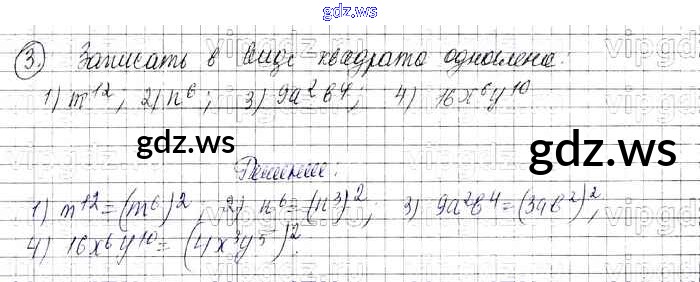 gdz.ws
3. Записать в виде квадрата одночлена:
1) m¹²; 2) n⁶; 3) 9a²b⁴; 4) 16x⁶y¹⁰
gdz.ws
gdz.ws
Решение:
1) m¹²=(m⁶)², 2) n⁶=(n³)², 3) 9a²b⁴=(3ab²)²,
4) 16x⁶y¹⁰=(4x³y⁵)².
gdz.ws